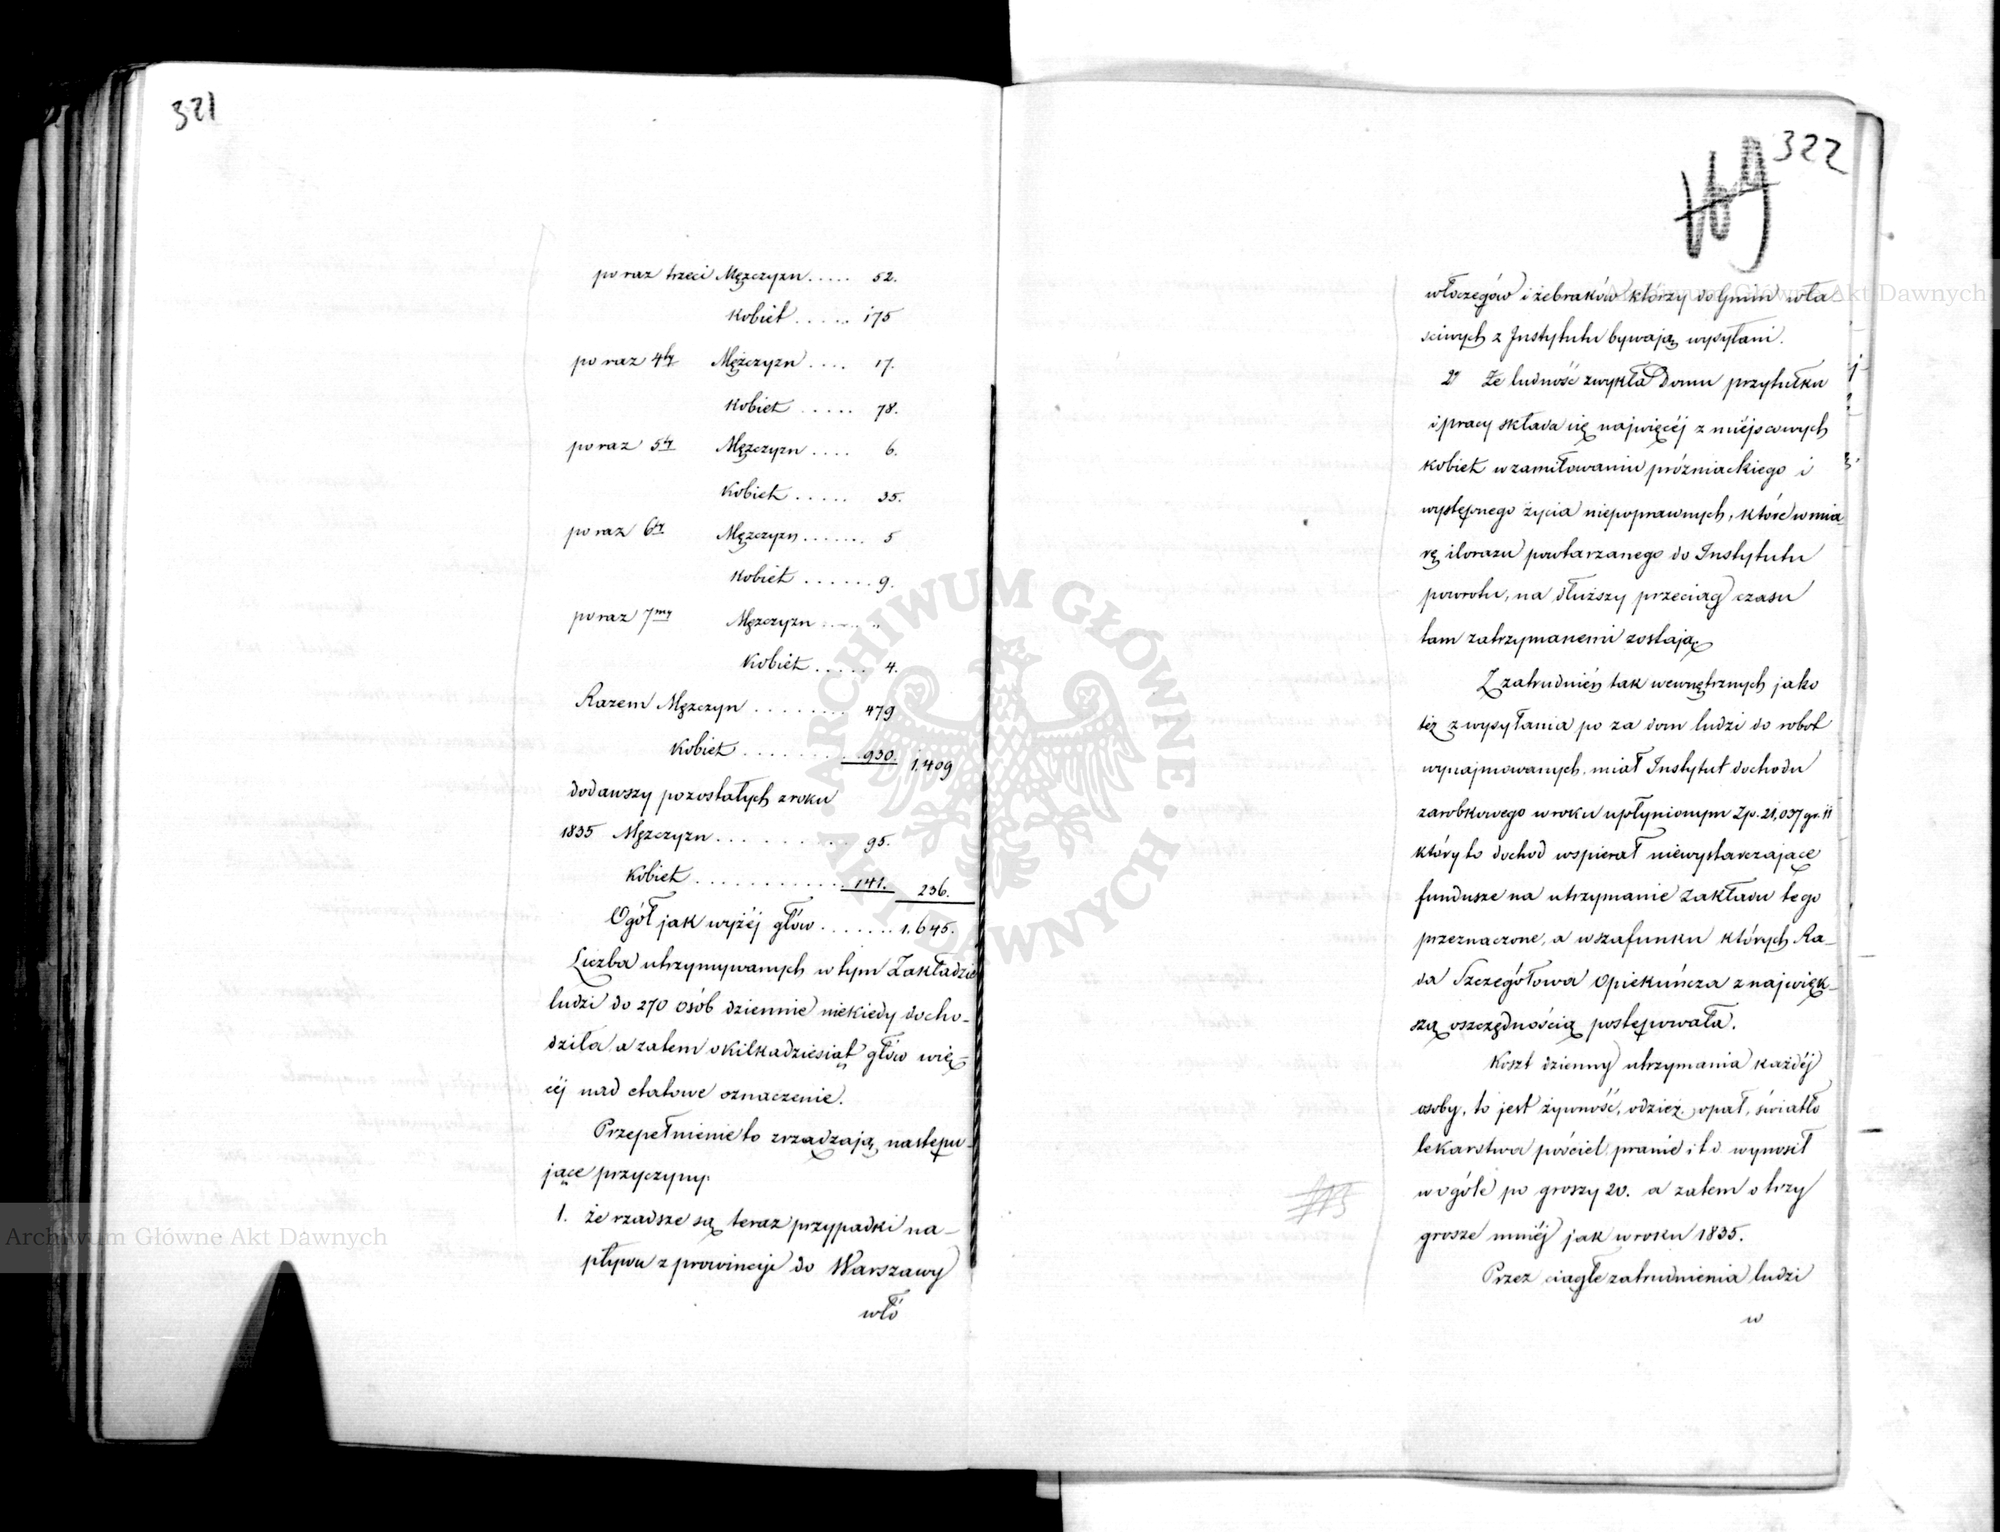 321
po raz trzeci Mężczyzn ..... 52.
Kobiet ..... 175
po raz 4ty Mężczyzn .... 17.
Kobiet ..... 78.
po raz 5ty Mężczyzn .... 6.
Kobiet ..... 35.
po raz 6ty Mężczyzn ....... 5
Kobiet ...... 9.
po raz 7my Mężczyzn ..... „
Kobiet ..... 4.
Razem Mężczyzn ........ 479
Kobiet ......... 930. 1.409
dodawszy pozostałych z roku
1835 Mężczyzn .......... 95.
Kobiet ............ 141. 236.
Ogół jak wyżéj głów ....... 1.645.
Liczba utrzymywanych w tym Zakładzie
ludzi do 270 osób dziennie niekiedy docho-
dziła, a zatem o kilkadziesiąt głów wię-
céj nad etatowe oznaczenie.
Przepełnienie to zrządzają następu-
jące przyczyny.
1. że rzadsze są teraz przypadki na-
pływu z prowincyi do Warszawy
włó
322
włóczęgów i żebraków którzy do Gmin wła-
sciwych z Instytutu bywają wysyłani.
2° Że ludność zwykła Domu przytułku
i pracy składa się najwięcéj z miéjscowych
kobiet w zamiłowaniu próżniackiego i
występnego życia niepoprawnych, które w mia-
rę ilorazu powtarzanego do Instytutu
powrotu, na dłuższy przeciąg czasu
tam zatrzymanemi zostają.
Z zatrudnień tak wewnętrznych jako
też z wysyłania po za dom ludzi do robót
wynajmowanych, miał Instytut dochodu
zarobkowego w roku upłynionym Zp. 21,037 gr. 11
który to dochod wspierał niewystarczające
fundusze na utrzymanie Zakładu tego
przeznaczone, a w szafunku których Ra-
da Szczegółowa Opiekuńcza z najwięk-
szą oszczędnością postępowała.
Koszt dzienny utrzymania każdéj
osoby, to jest żywność, odzież, opał, światło
lekarstwa pościel, pranie i t d wynosił
w ogóle po groszy 20. a zatem o trzy
grosze mniéj jak w roku 1835.
Przez ciągłe zatrudnienia ludzi
w
ARCHIWUM GŁÓWNE AKT DAWNYCH
Archiwum Główne Akt Dawnych
Archiwum Główne Akt Dawnych